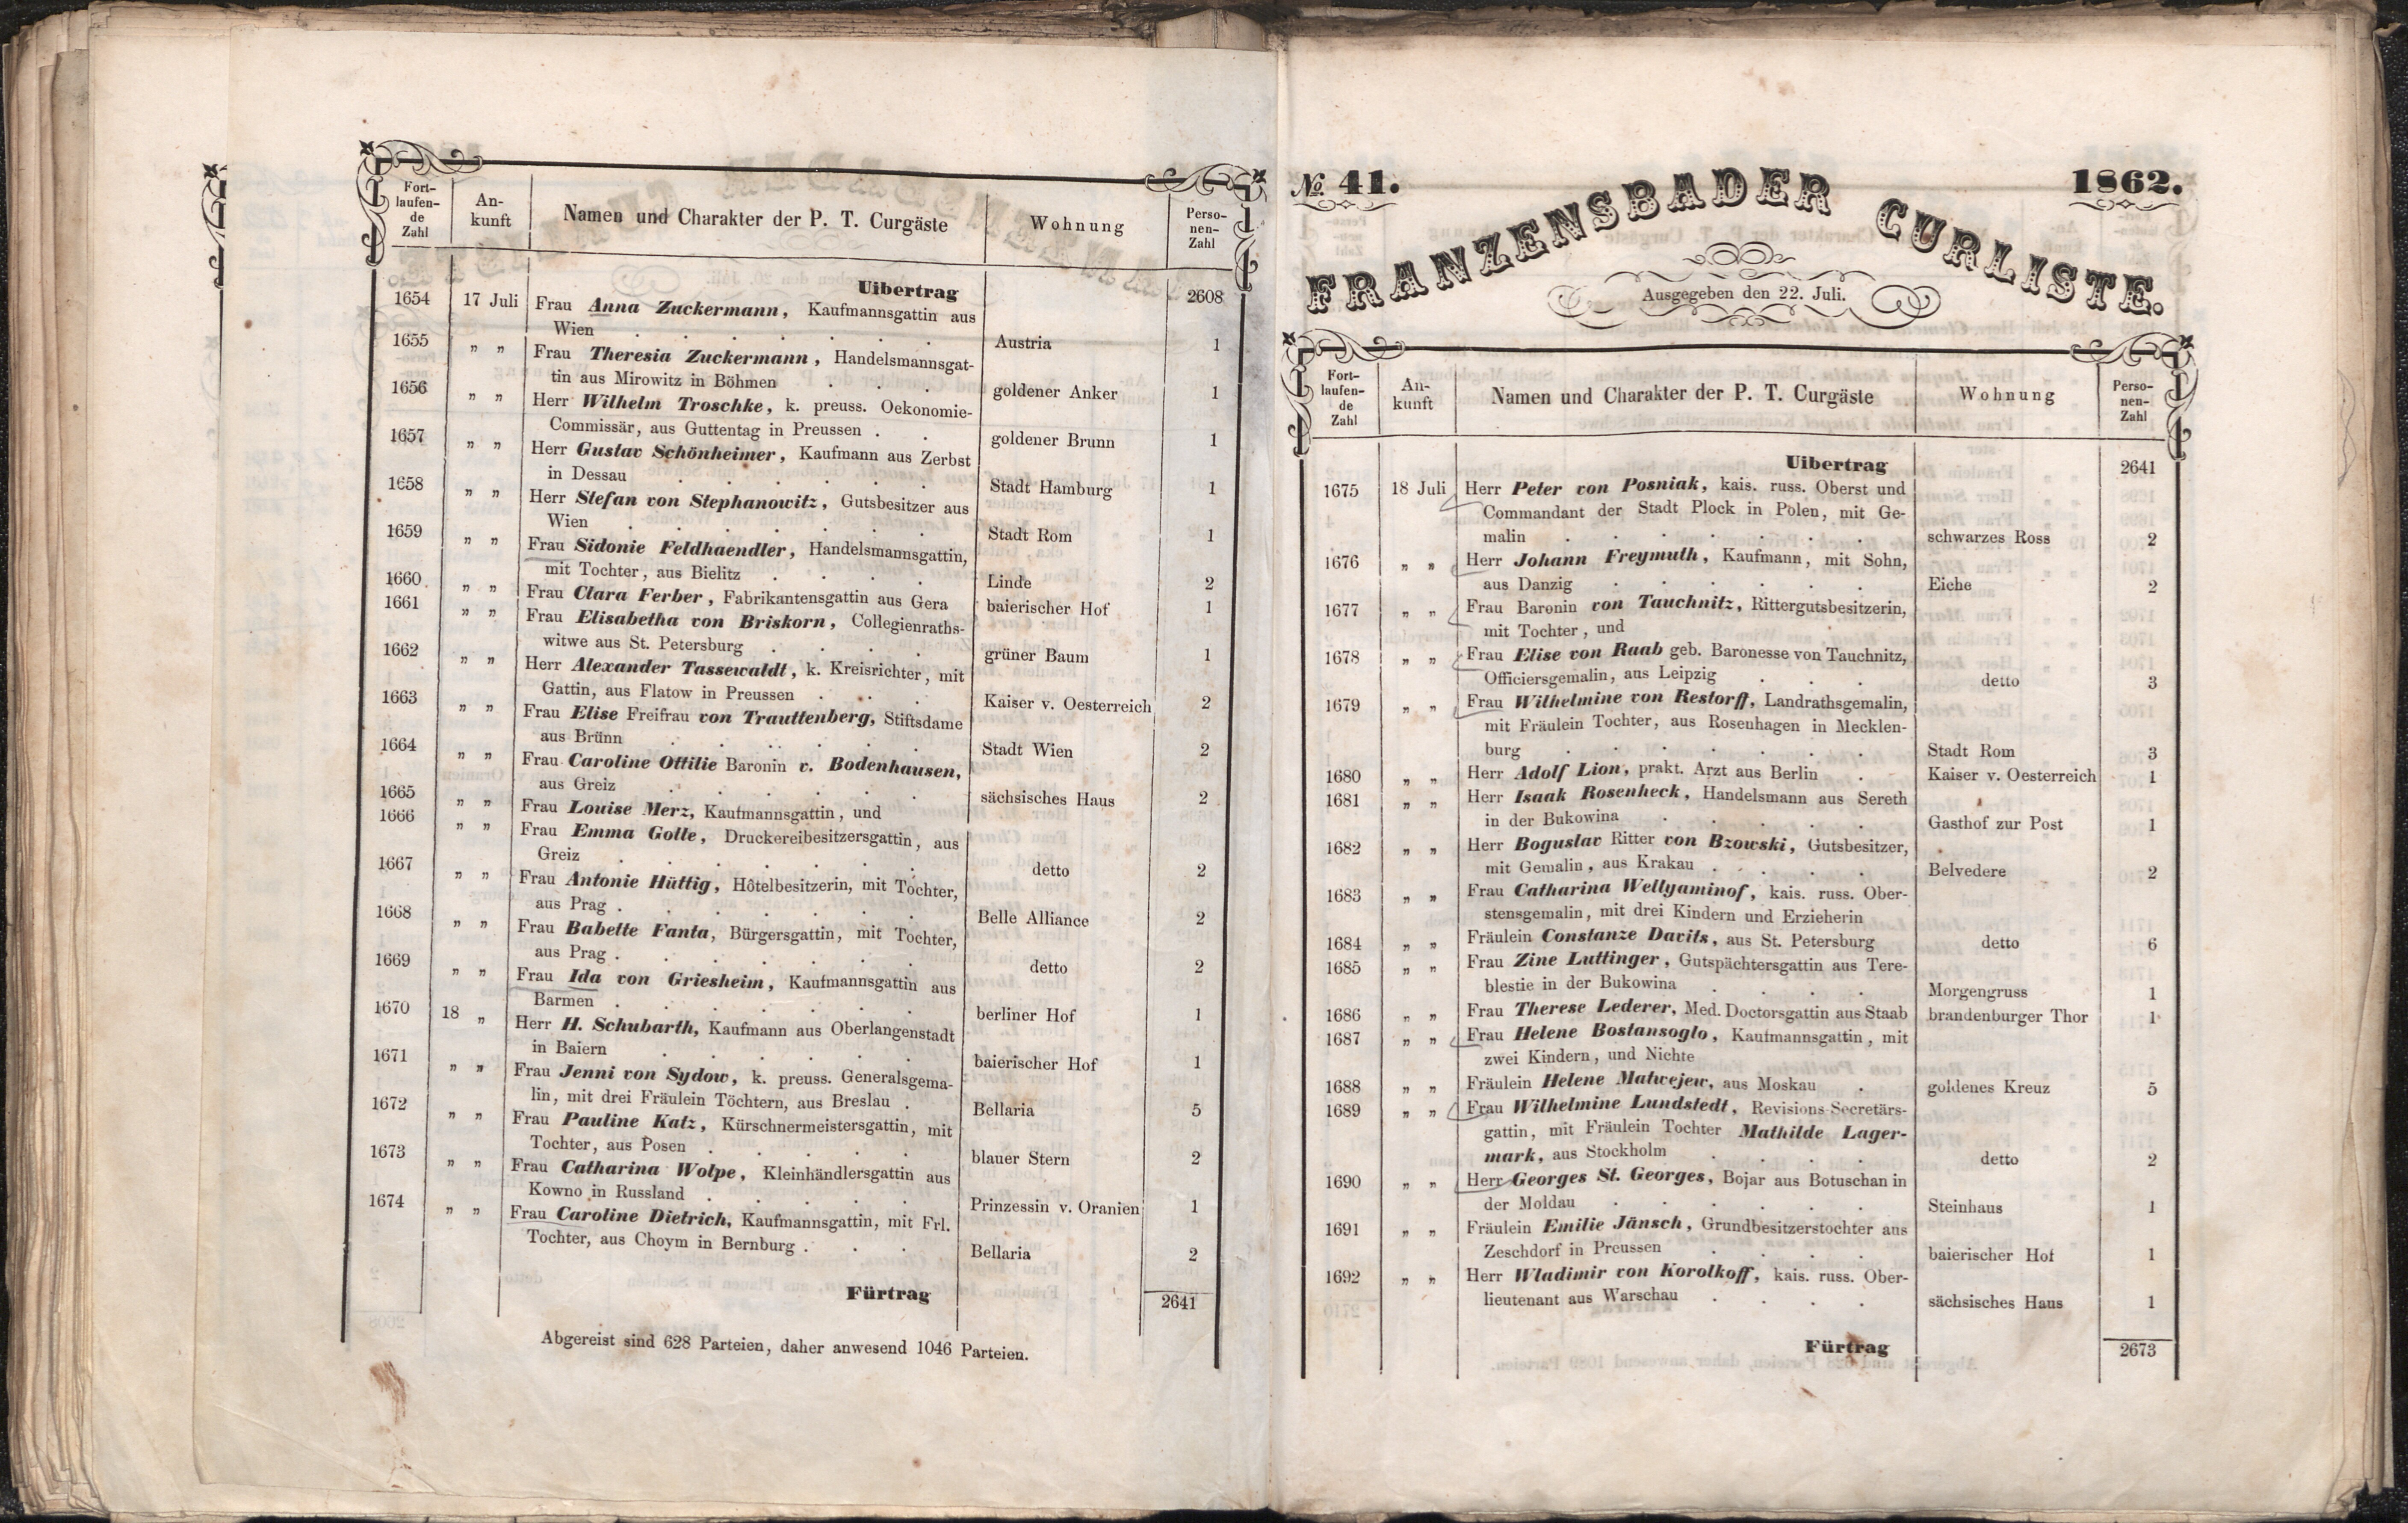 Fort-
laufen-
de
Zahl
An-
kunft
Namen und Charakter der P. T. Curgäste
Wohnung
Perso-
nen-
Zahl
Uibertrag 2608
1654 17 Juli Frau Anna Zuckermann, Kaufmannsgattin aus
Wien . . . . . . . Austria 1
1655 „ „ Frau Theresia Zuckermann, Handelsmannsgat-
tin aus Mirowitz in Böhmen . . . goldener Anker 1
1656 „ „ Herr Wilhelm Troschke, k. preuss. Oekonomie-
Commissär, aus Guttentag in Preussen . . goldener Brunn 1
1657 „ „ Herr Gustav Schönheimer, Kaufmann aus Zerbst
in Dessau . . . . . . Stadt Hamburg 1
1658 „ „ Herr Stefan von Stephanowitz, Gutsbesitzer aus
Wien . . . . . . . Stadt Rom 1
1659 „ „ Frau Sidonie Feldhaendler, Handelsmannsgattin,
mit Tochter, aus Bielitz . . . . Linde 2
1660 „ „ Frau Clara Ferber, Fabrikantensgattin aus Gera baierischer Hof 1
1661 „ „ Frau Elisabetha von Briskorn, Collegienraths-
witwe aus St. Petersburg . . . . grüner Baum 1
1662 „ „ Herr Alexander Tassewaldt, k. Kreisrichter, mit
Gattin, aus Flatow in Preussen . . . Kaiser v. Oesterreich 2
1663 „ „ Frau Elise Freifrau von Trauttenberg, Stiftsdame
aus Brünn . . . . . . Stadt Wien 2
1664 „ „ Frau Caroline Ottilie Baronin v. Bodenhausen,
aus Greiz . . . . . . sächsisches Haus 2
1665 „ „ Frau Louise Merz, Kaufmannsgattin, und
1666 „ „ Frau Emma Golle, Druckereibesitzersgattin, aus
Greiz . . . . . . . detto 2
1667 „ „ Frau Antonie Hüttig, Hôtelbesitzerin, mit Tochter,
aus Prag . . . . . . . Belle Alliance 2
1668 „ „ Frau Babette Fanta, Bürgersgattin, mit Tochter,
aus Prag . . . . . . . detto 2
1669 „ „ Frau Ida von Griesheim, Kaufmannsgattin aus
Barmen . . . . . . . berliner Hof 1
1670 18 „ Herr H. Schubarth, Kaufmann aus Oberlangenstadt
in Baiern . . . . . . baierischer Hof 1
1671 „ „ Frau Jenni von Sydow, k. preuss. Generalsgema-
lin, mit drei Fräulein Töchtern, aus Breslau . Bellaria 5
1672 „ „ Frau Pauline Katz, Kürschnermeistersgattin, mit
Tochter, aus Posen . . . . . blauer Stern 2
1673 „ „ Frau Catharina Wolpe, Kleinhändlersgattin aus
Kowno in Russland . . . . . Prinzessin v. Oranien 1
1674 „ „ Frau Caroline Dietrich, Kaufmannsgattin, mit Frl.
Tochter, aus Choym in Bernburg . . . Bellaria 2
Fürtrag 2641
Abgereist sind 628 Parteien, daher anwesend 1046 Parteien.
№ 41. 1862.
FRANZENSBADER CURLISTE.
Ausgegeben den 22. Juli.
Fort-
laufen-
de
Zahl
An-
kunft
Namen und Charakter der P. T. Curgäste
Wohnung
Perso-
nen-
Zahl
Uibertrag 2641
1675 18 Juli Herr Peter von Posniak, kais. russ. Oberst und
Commandant der Stadt Plock in Polen, mit Ge-
malin . . . . . . . schwarzes Ross 2
1676 „ „ Herr Johann Freymuth, Kaufmann, mit Sohn,
aus Danzig . . . . . . Eiche 2
1677 „ „ Frau Baronin von Tauchnitz, Rittergutsbesitzerin,
mit Tochter, und
1678 „ „ Frau Elise von Raab geb. Baronesse von Tauchnitz,
Officiersgemalin, aus Leipzig . . . detto 3
1679 „ „ Frau Wilhelmine von Restorff, Landrathsgemalin,
mit Fräulein Tochter, aus Rosenhagen in Mecklen-
burg . . . . . . . Stadt Rom 3
1680 „ „ Herr Adolf Lion, prakt. Arzt aus Berlin . Kaiser v. Oesterreich 1
1681 „ „ Herr Isaak Rosenheck, Handelsmann aus Sereth
in der Bukowina . . . . . Gasthof zur Post 1
1682 „ „ Herr Boguslav Ritter von Bzowski, Gutsbesitzer,
mit Gemalin, aus Krakau . . . . Belvedere 2
1683 „ „ Frau Catharina Wellyaminof, kais. russ. Ober-
stensgemalin, mit drei Kindern und Erzieherin
1684 „ „ Fräulein Constanze Davits, aus St. Petersburg detto 6
1685 „ „ Frau Zine Luttinger, Gutspächtersgattin aus Tere-
blestie in der Bukowina . . . . Morgengruss 1
1686 „ „ Frau Therese Lederer, Med. Doctorsgattin aus Staab brandenburger Thor 1
1687 „ „ Frau Helene Bostansoglo, Kaufmannsgattin, mit
zwei Kindern, und Nichte
1688 „ „ Fräulein Helene Matwejew, aus Moskau . goldenes Kreuz 5
1689 „ „ Frau Wilhelmine Lundstedt, Revisions-Secretärs-
gattin, mit Fräulein Tochter Mathilde Lager-
mark, aus Stockholm . . . . detto 2
1690 „ „ Herr Georges St. Georges, Bojar aus Botuschan in
der Moldau . . . . . . Steinhaus 1
1691 „ „ Fräulein Emilie Jänsch, Grundbesitzerstochter aus
Zeschdorf in Preussen . . . . baierischer Hof 1
1692 „ „ Herr Wladimir von Korolkoff, kais. russ. Ober-
lieutenant aus Warschau . . . . sächsisches Haus 1
Fürtrag 2673